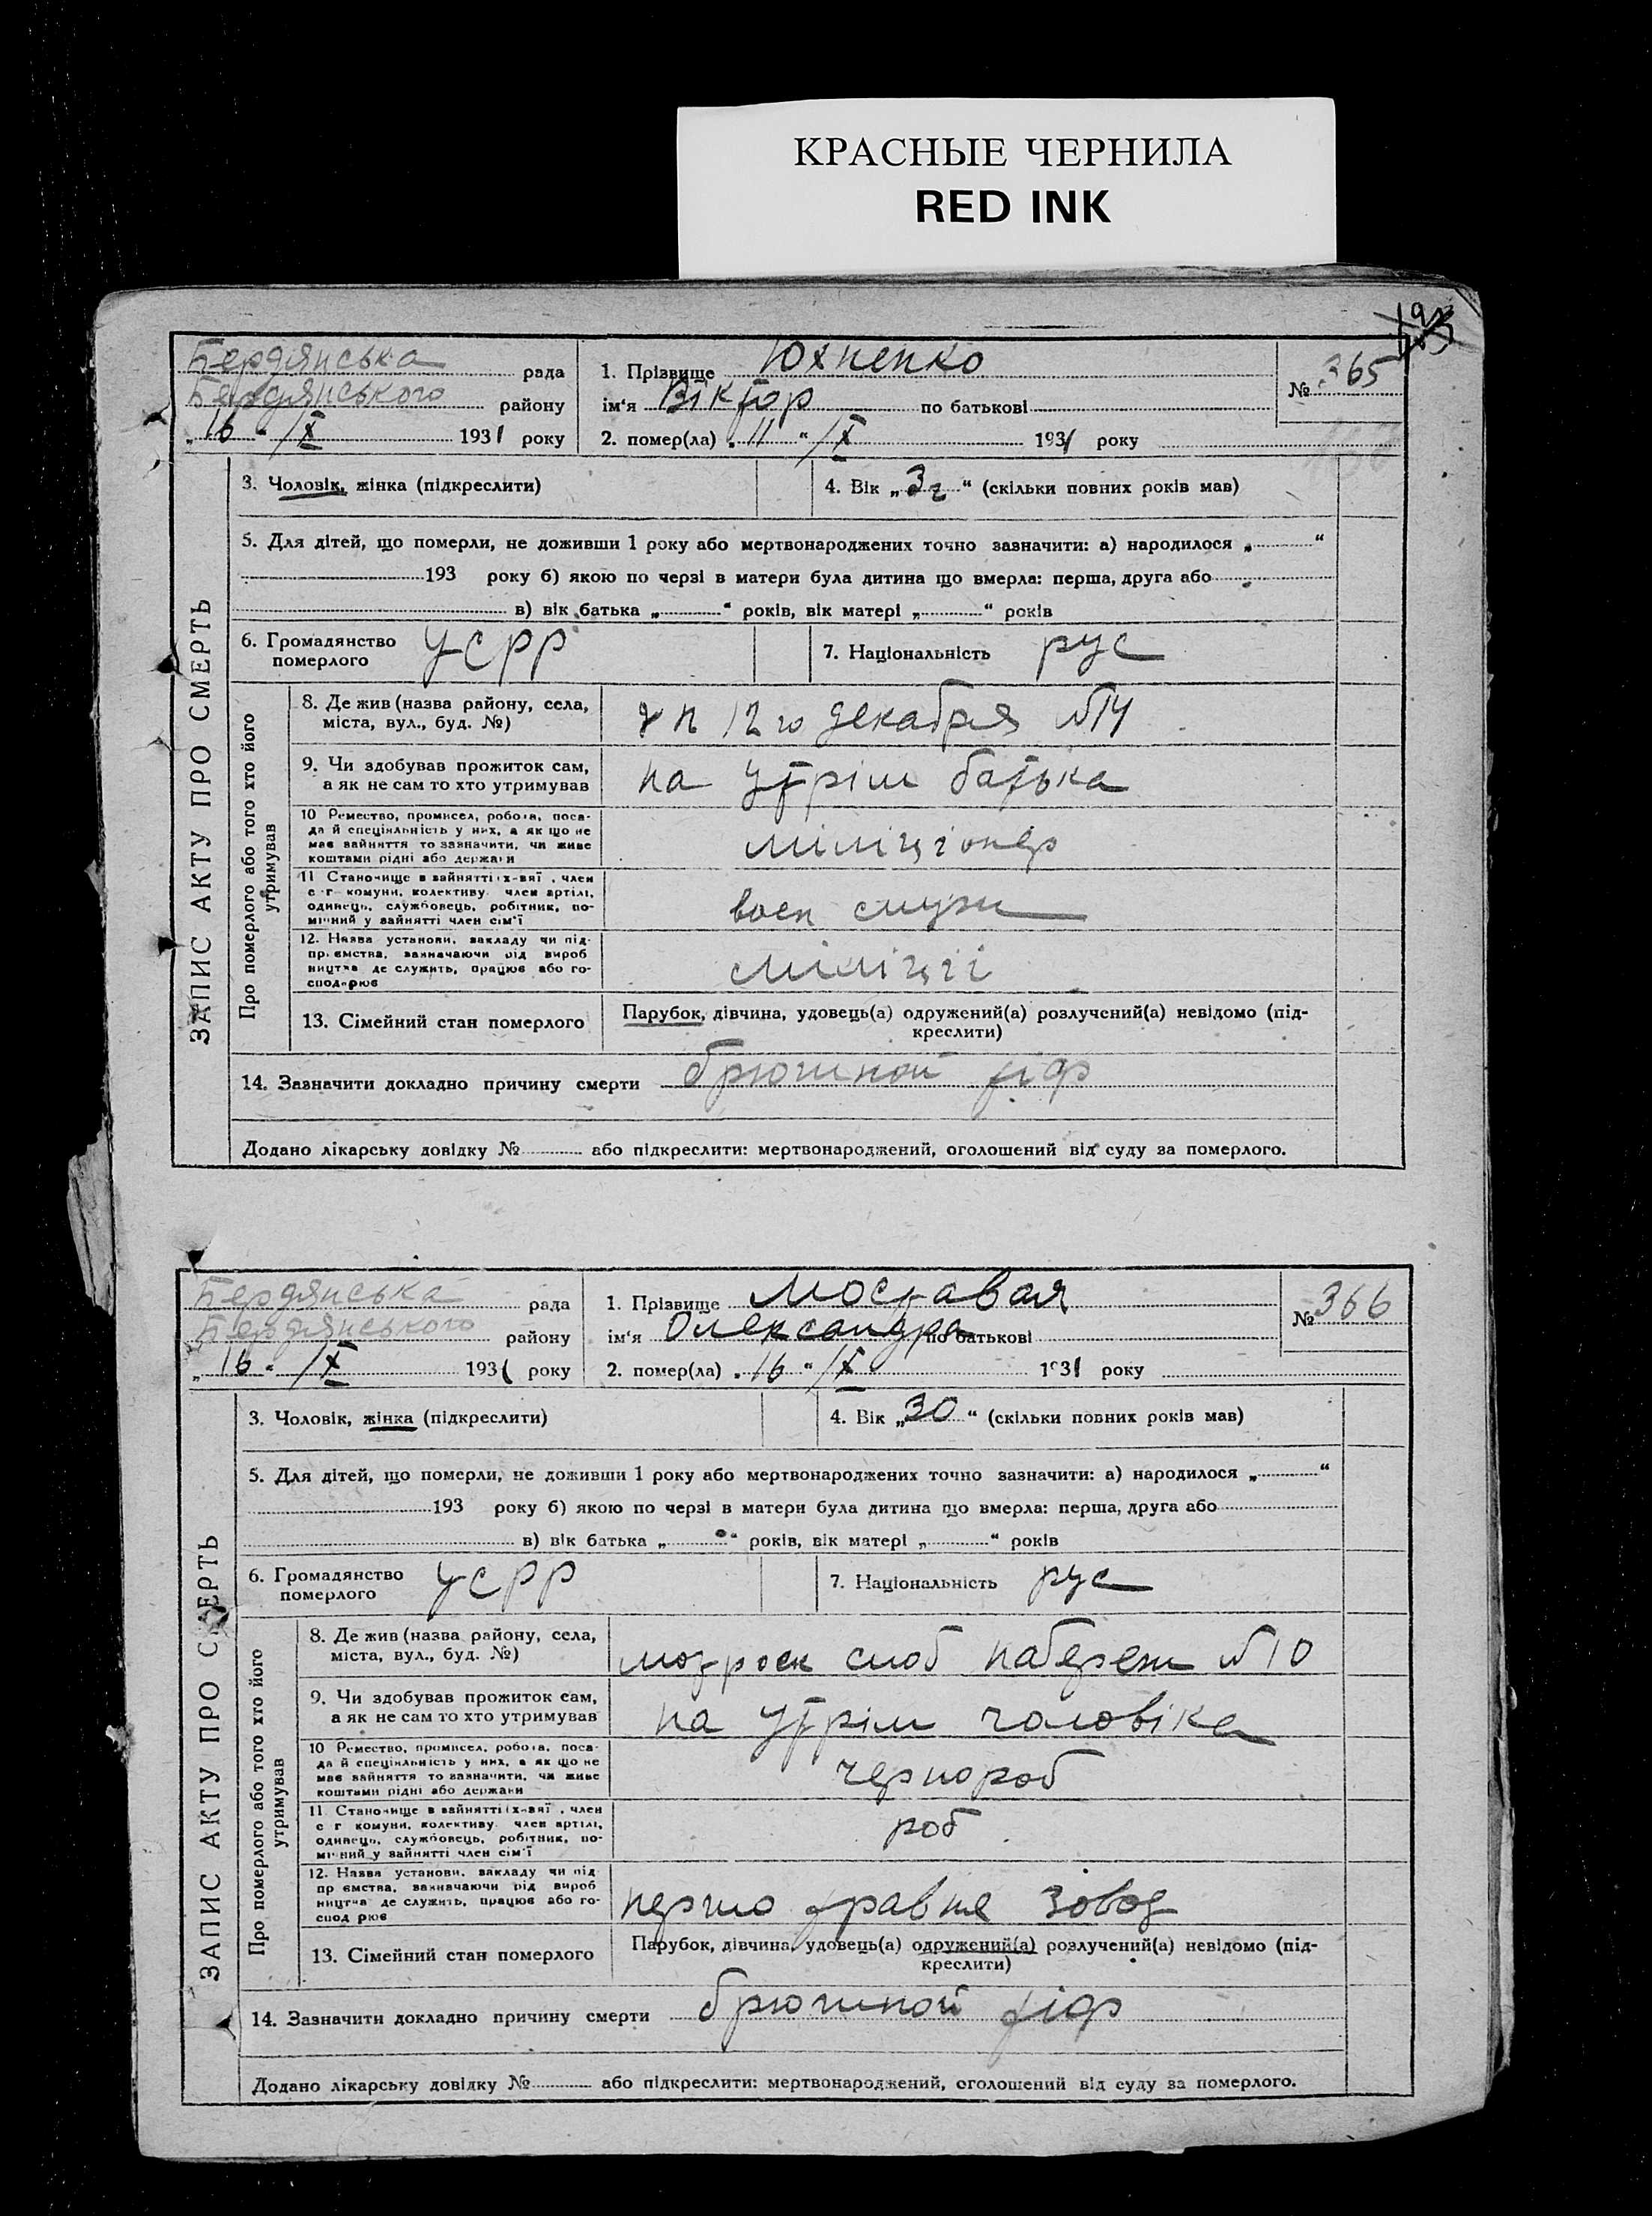 КРАСНЫЕ ЧЕРНИЛА
RED INK
Бердянська рада
Бердянського району
„16“ /X 1931 року
1. Прізвище Юхненко
ім‘я Віктор по батькові
2. помер(ла) „11“ /X 1931 року
№ 365
ЗАПИС АКТУ ПРО СМЕРТЬ
3. Чоловік, жінка (підкреслити)
4. Вік „3г“ (скільки повних років мав)
5. Для дітей, що померли, не доживши 1 року або мертвонароджених точно зазначити: а) народилося „ “
193 року б) якою по черзі в матери була дитина що вмерла: перша, друга або
в) вік батька „ “ років, вік матері „ “ років
6. Громадянство померлого УСРР
7. Національність рус
Про померлого або того хто його утримував
8. Де жив (назва району, села,
міста, вул., буд. №)
12 го декабря №14
9. Чи здобував прожиток сам,
а як не сам то хто утримував
на утрім батька
10 Ремество, промисел, робота, поса-
да й спеціяльність у них, а як що не
має зайняття то зазначити, чи живе
коштами рідні або держави
міліціонер
11 Становище в зайнятті х-вяї, член
с г комуни, колективу член артілі,
одинець, службовець, робітник, по-
мічний у зайнятті член сім'ї
воен служ
12. Назва установи, закладу чи під-
приємства, зазначаючи рід вироб
ництва де служить, працює або го-
сподарює
міліції
13. Сімейний стан померлого
Парубок, дівчина, удовець(а) одружений(а) розлучений(а) невідомо (під-
креслити)
14. Зазначити докладно причину смерти брюшной тіф
Додано лікарську довідку № або підкреслити: мертвонароджений, оголошений від суду за померлого.
Бердянська рада
Бердянського району
„16“ /X 1931 року
1. Прізвище Моставая
ім‘я Олександра по батькові
2. помер(ла) „16“ /X 1931 року
№ 366
ЗАПИС АКТУ ПРО СМЕРТЬ
3. Чоловік, жінка (підкреслити)
4. Вік „30“ (скільки повних років мав)
5. Для дітей, що померли, не доживши 1 року або мертвонароджених точно зазначити: а) народилося „ “
193 року б) якою по черзі в матери була дитина що вмерла: перша, друга або
в) вік батька „ “ років, вік матері „ “ років
6. Громадянство померлого УСРР
7. Національність рус
Про померлого або того хто його утримував
8. Де жив (назва району, села,
міста, вул., буд. №)
матроск слоб набереж №10
9. Чи здобував прожиток сам,
а як не сам то хто утримував
на утрім чоловіка
10 Ремество, промисел, робота, поса-
да й спеціяльність у них, а як що не
має зайняття то зазначити, чи живе
коштами рідні або держави
чернороб
11 Становище в зайнятті х-вяї, член
с г комуни, колективу член артілі,
одинець, службовець, робітник, по-
мічний у зайнятті член сім'ї
роб
12. Назва установи, закладу чи під
приємства, зазначаючи рід вироб
ництва де служить, працює або го-
сподарює
першо травне Зовод
13. Сімейний стан померлого
Парубок, дівчина, удовець(а) одружений(а) розлучений(а) невідомо (під-
креслити)
14. Зазначити докладно причину смерти брюшной тіф
Додано лікарську довідку № або підкреслити: мертвонароджений, оголошений від суду за померлого.